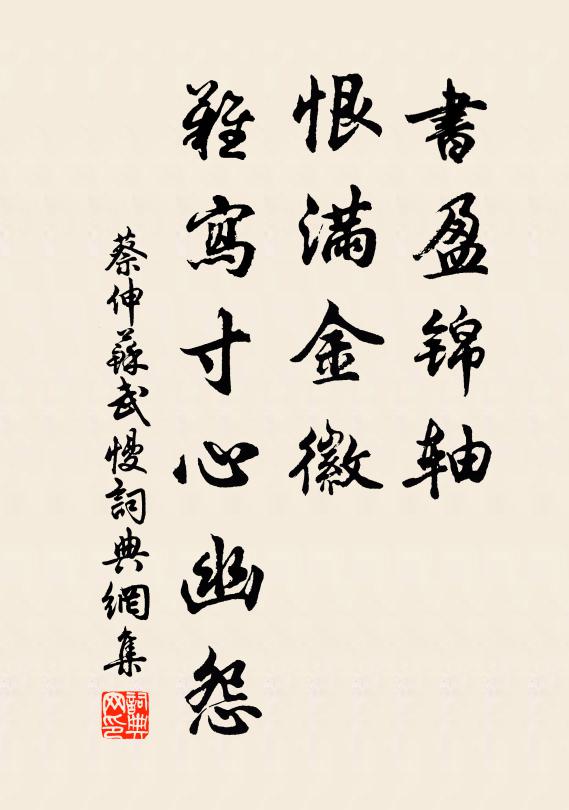 書盈锦軸
恨滿金徽
難寫寸心幽怨
蔡伸蘇武慢詞典網集
詞典网印